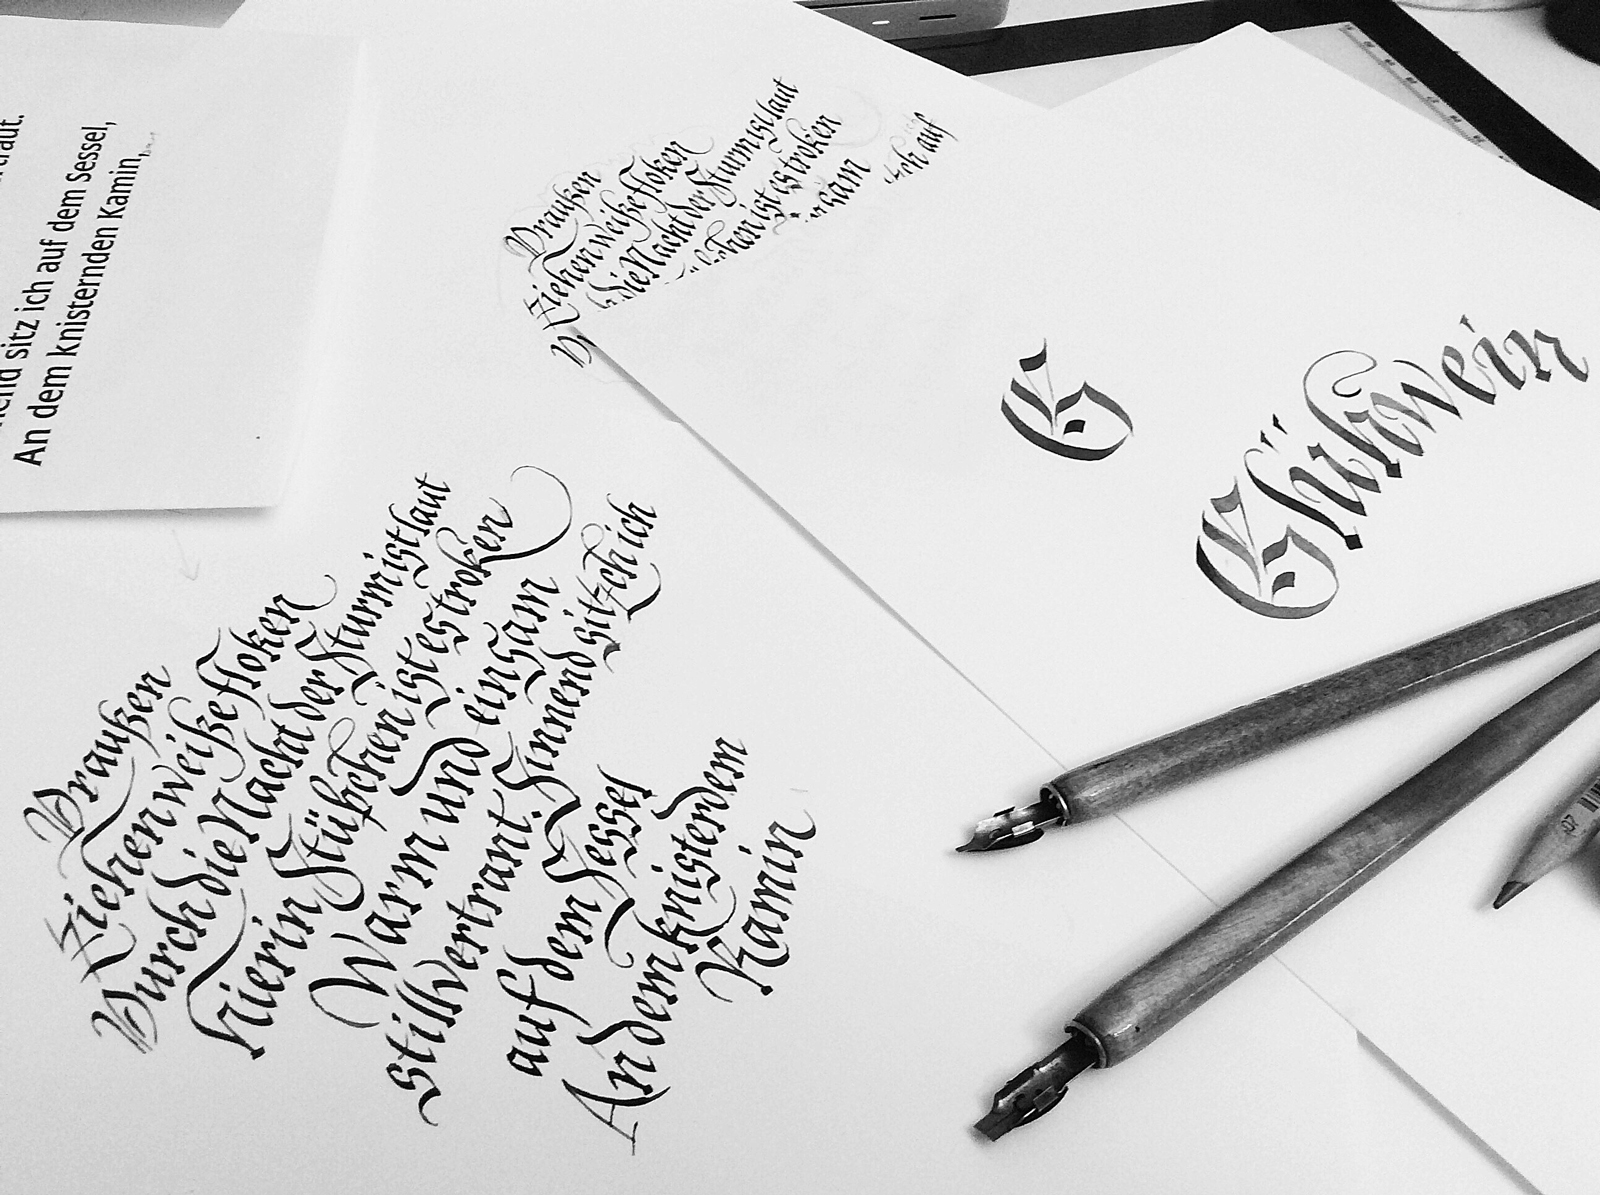 sitz ich auf dem Sessel,
An dem knisternden Kamin,
Draußen
Ziehen weiße floken
die Nacht der Sturm ist laut
ist es troken
auf
G
Glühwein
Draußen
Ziehen weiße floken
Durch die Nacht der Sturm ist laut
hier in Stübchen ist es troken
Warm und einsam
still vertrant. Sinnend sitzch ich
auf dem Sessel
An dem knisterdem
Kamin